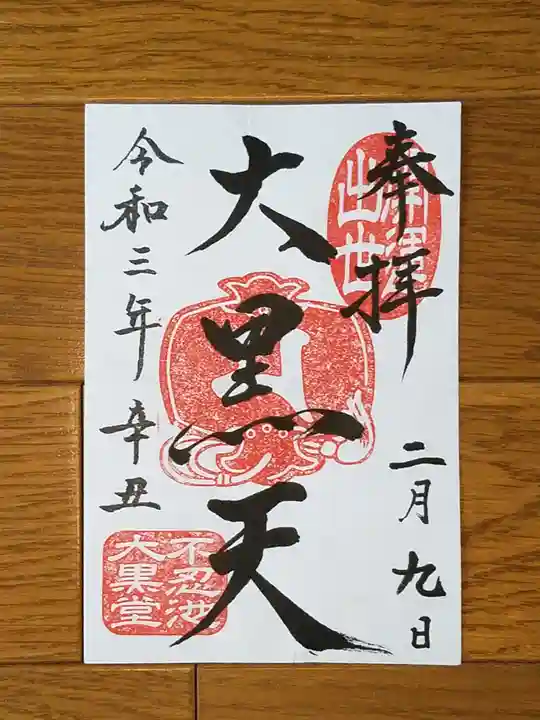 奉拝
二月九日
大黒天
令和三年辛丑
出世
不忍池
大黒堂